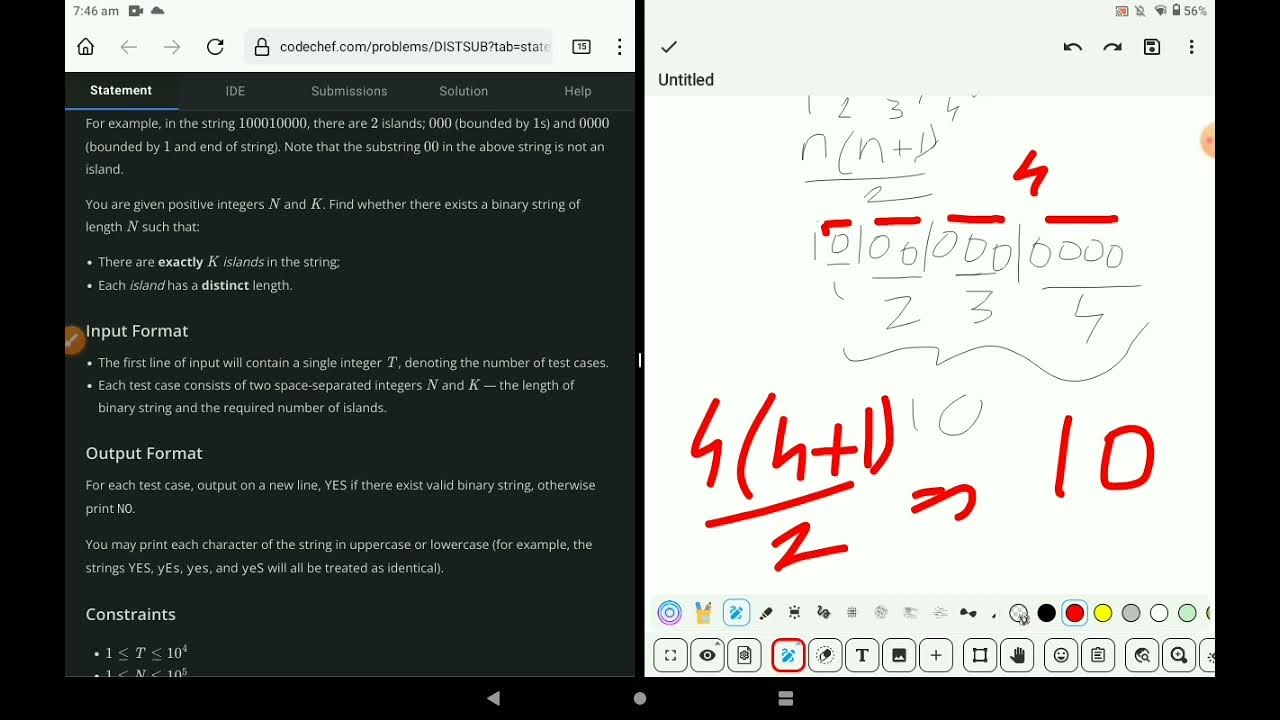 7:46 am
56%
codechef.com/problems/DISTSUB?tab=state
15
Statement IDE Submissions Solution Help
For example, in the string 100010000, there are 2 islands; 000 (bounded by 1s) and 0000
(bounded by 1 and end of string). Note that the substring 00 in the above string is not an
island.
You are given positive integers N and K. Find whether there exists a binary string of
length N such that:
• There are exactly K islands in the string;
• Each island has a distinct length.
Input Format
• The first line of input will contain a single integer T, denoting the number of test cases.
• Each test case consists of two space-separated integers N and K — the length of
binary string and the required number of islands.
Output Format
For each test case, output on a new line, YES if there exist valid binary string, otherwise
print NO.
You may print each character of the string in uppercase or lowercase (for example, the
strings YES, yEs, yes, and yeS will all be treated as identical).
Constraints
• 1 ≤ T ≤ 10⁴
• 1 ≤ N ≤ 10⁵
Untitled
1 2 3 4
n(n+1)
2
4
10100100010000
1 2 3 4
10
4(4+1)
2
= 10
T